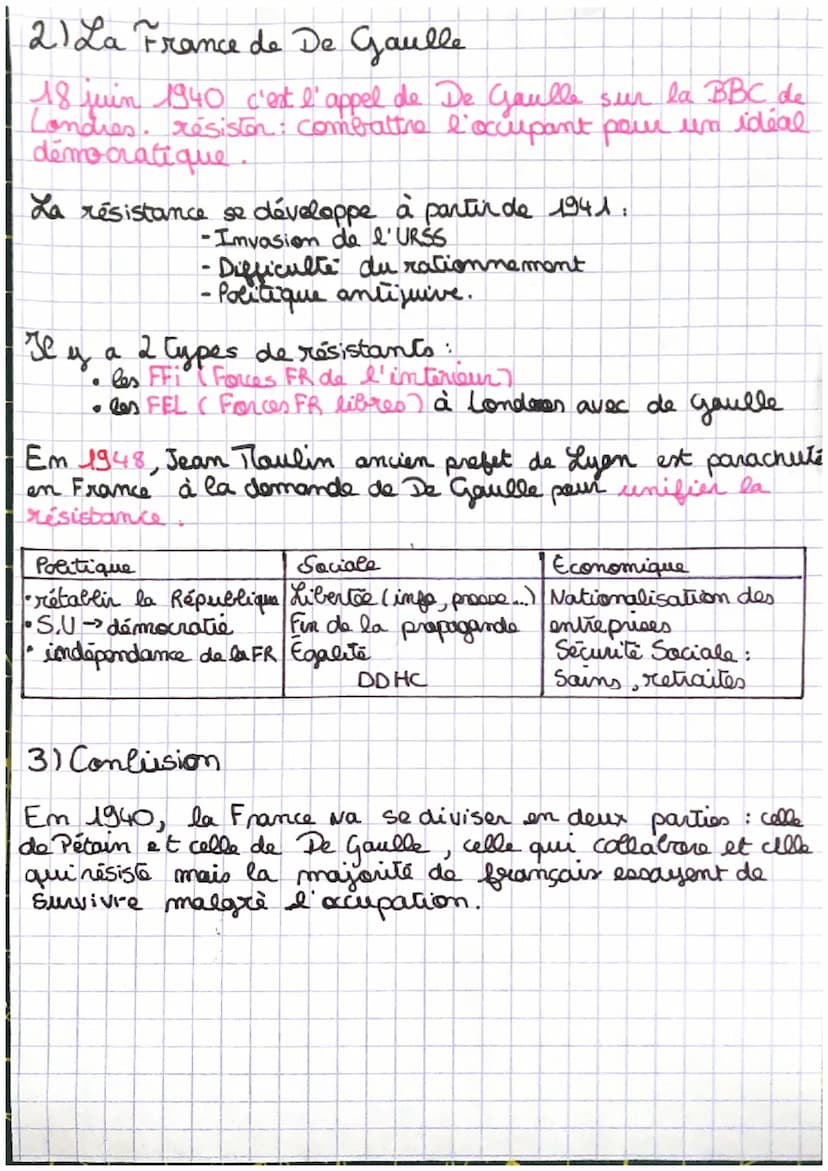 2) La France de De Gaulle
18 juin 1940 c'est l'appel de De Gaulle sur la BBC de
Londres. résister : combattre l'occupant pour un idéal
démocratique.
La résistance se développe à partir de 1941 :
- Invasion de l'URSS
- Difficulté du rationnement
- Politique antijuive.
Il y a 2 types de résistants :
• les FFi (Forces FR de l'intérieur)
• les FFL (Forces FR libres) à Londres avec de Gaulle
En 1948, Jean Moulin ancien prefet de Lyon est parachuté
en France à la demande de De Gaulle pour unifier la
résistance.
Politique Sociale Economique
• rétablir la République Libertée (info, presse...) Nationalisation des
• S.U → démocratie Fin de la propagande entreprises
• indépendance de la FR Égalité Sécurité Sociale :
DDHC Soins, retraites
3) Conlusion
En 1940, la France va se diviser en deux parties : celle
de Pétain et celle de De Gaulle, celle qui collabore et celle
qui résiste mais la majorité de français essayent de
Survivre malgrè l'occupation.